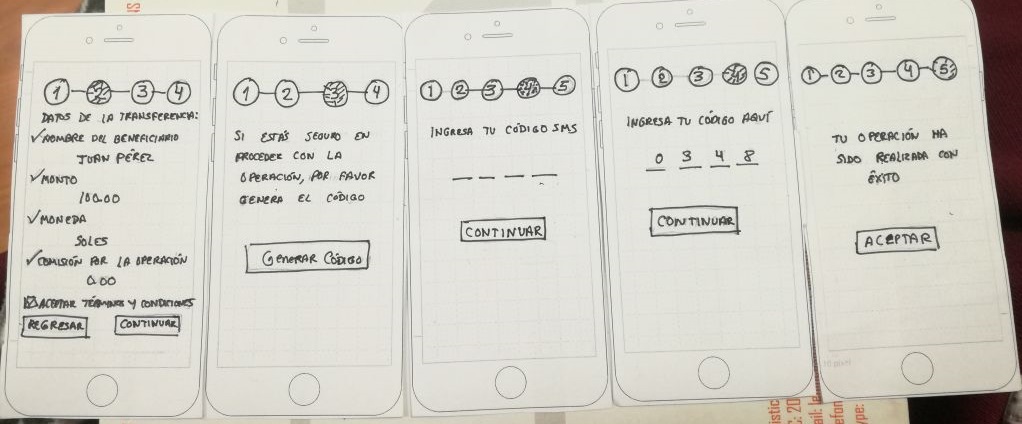 1 2 3 4
DATOS DE LA TRANSFERENCIA:
✓NOMBRE DEL BENEFICIARIO
JUAN PÉREZ
✓MONTO
100.00
✓MONEDA
SOLES
✓COMISIÓN POR LA OPERACIÓN
0.00
☑ACEPTAR TÉRMINOS Y CONDICIONES
REGRESAR CONTINUAR
1 2 3 4
SI ESTÁS SEGURO EN
PROCEDER CON LA
OPERACIÓN, POR FAVOR
GENERA EL CÓDIGO
GENERAR CÓDIGO
1 2 3 4 5
INGRESA TU CÓDIGO SMS
CONTINUAR
1 2 3 4 5
INGRESA TU CÓDIGO AQUÍ
0 3 4 8
CONTINUAR
1 2 3 4 5
TU OPERACIÓN HA
SIDO REALIZADA CON
ÉXITO
ACEPTAR